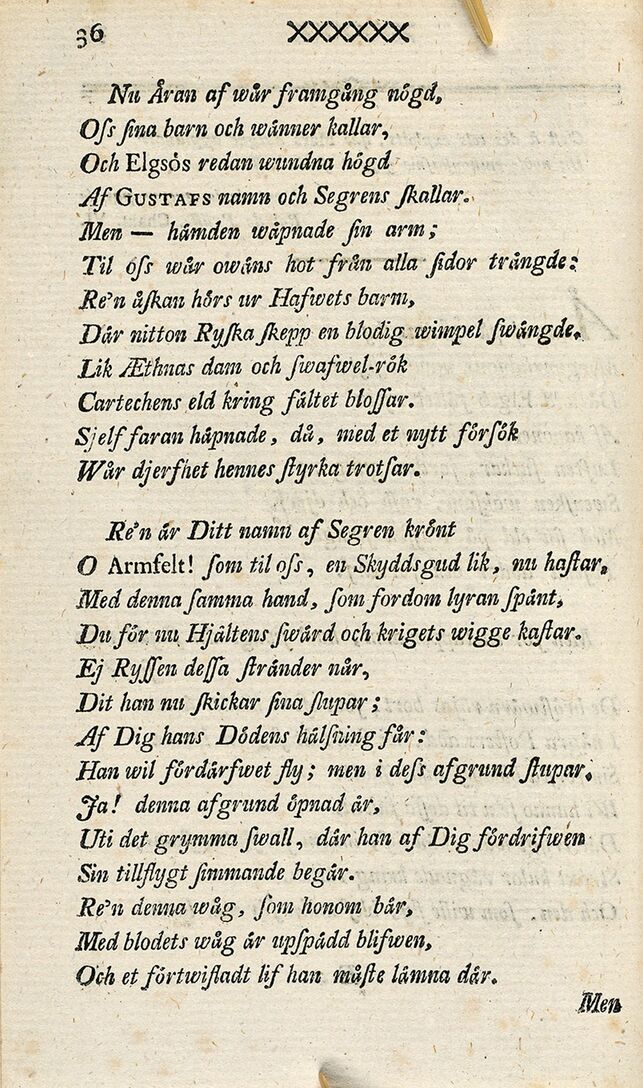 36 XXXXXX
Nu Åran af wår framgång nögd,
Oſs ſina barn och wänner kallar,
Och Elgsös redan wundna högd
Af GUSTAFS namn och Segrens ſkallar.
Men — hämden wåpnade ſin arm;
Til oſs wår owäns hot från alla ſidor trängde:
Re'n åſkan hörs ur Hafwets barm,
Där nitton Ryſka ſkepp en blodig wimpel ſwängde.
Lik Æthnas dam och ſwafwel-rök
Cartechens eld kring fältet bloſſar.
Sjelf faran häpnade, då, med et nytt förſök
Wår djerfhet hennes ſtyrka trotſar.
Re'n är Ditt namn af Segren krönt
O Armfelt! ſom til oſs, en Skyddsgud lik, nu haſtar,
Med denna ſamma hand, ſom fordom lyran ſpänt,
Du för nu Hjältens ſwärd och krigets wigge kaſtar.
Ej Ryſſen deſſa ſtränder når,
Dit han nu ſkickar ſina ſlupar;
Af Dig hans Dödens hälſning får:
Han wil fördärfwet fly; men i deſs afgrund ſtupar.
Ja! denna afgrund öpnad är,
Uti det grymma ſwall, där han af Dig fördrifwen
Sin tillflygt ſimmande begär.
Re'n denna wåg, ſom honom bär,
Med blodets wåg är upſpädd blifwen,
Och et förtwifladt lif han måſte lämna där.
Men